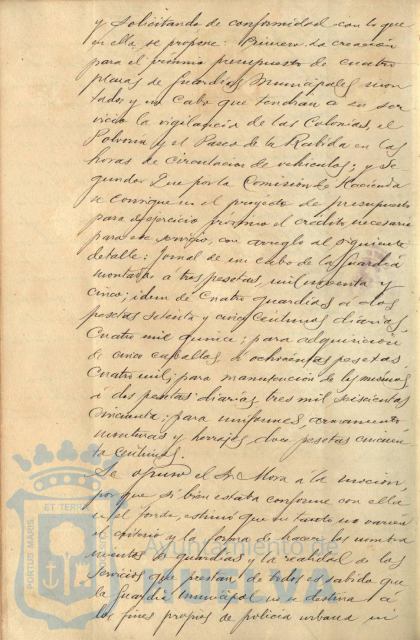 y solicitando de conformidad con lo que
en ella, se propone: Primero. La creación
para el próximo presupuesto de cuatro
plazas de Guardias Municipales mon-
tados y un Cabo que tendrán a su ser
vicio la vigilancia de las Colonias, el
Polvorin y el Paseo de la Rabida en las
horas de circulacion de vehiculos; y se
gundo: Que por la Comisión de Hacienda
se consigne en el proyecto de presupuesto
para el ejercicio próximo el crédito necesario
para ese servicio, con arreglo al siguiente
detalle: Jornal de un cabo de la Guardia
montada a tres pesetas, mil noventa y
cinco; idem de cuatro guardias a dos
pesetas setenta y cinco centimos diarias,
cuatro mil quince; para adquisicion
de cinco caballos, a ochocientas pesetas
cuatro mil; para manutencion de los mismos
a dos pesetas diarias tres mil seiscientas
cincuenta; para uniformes, armamento
monturas y herrajes, doce pesetas cincuen
ta centimos.
Se opuso el Sr. Mora á la moción,
por que si bien estaba conforme con ella
en el fondo, estimó que en tanto no varien
el criterio y la forma de hacer los nombra
mientos de guardias y la realidad de los
servicios que prestan, de todos es sabido que
la Guardia Municipal no se destina á
los fines propios de policia urbana, ni
PORTUS MARIS
ET TERRÆ
Ayuntamiento de